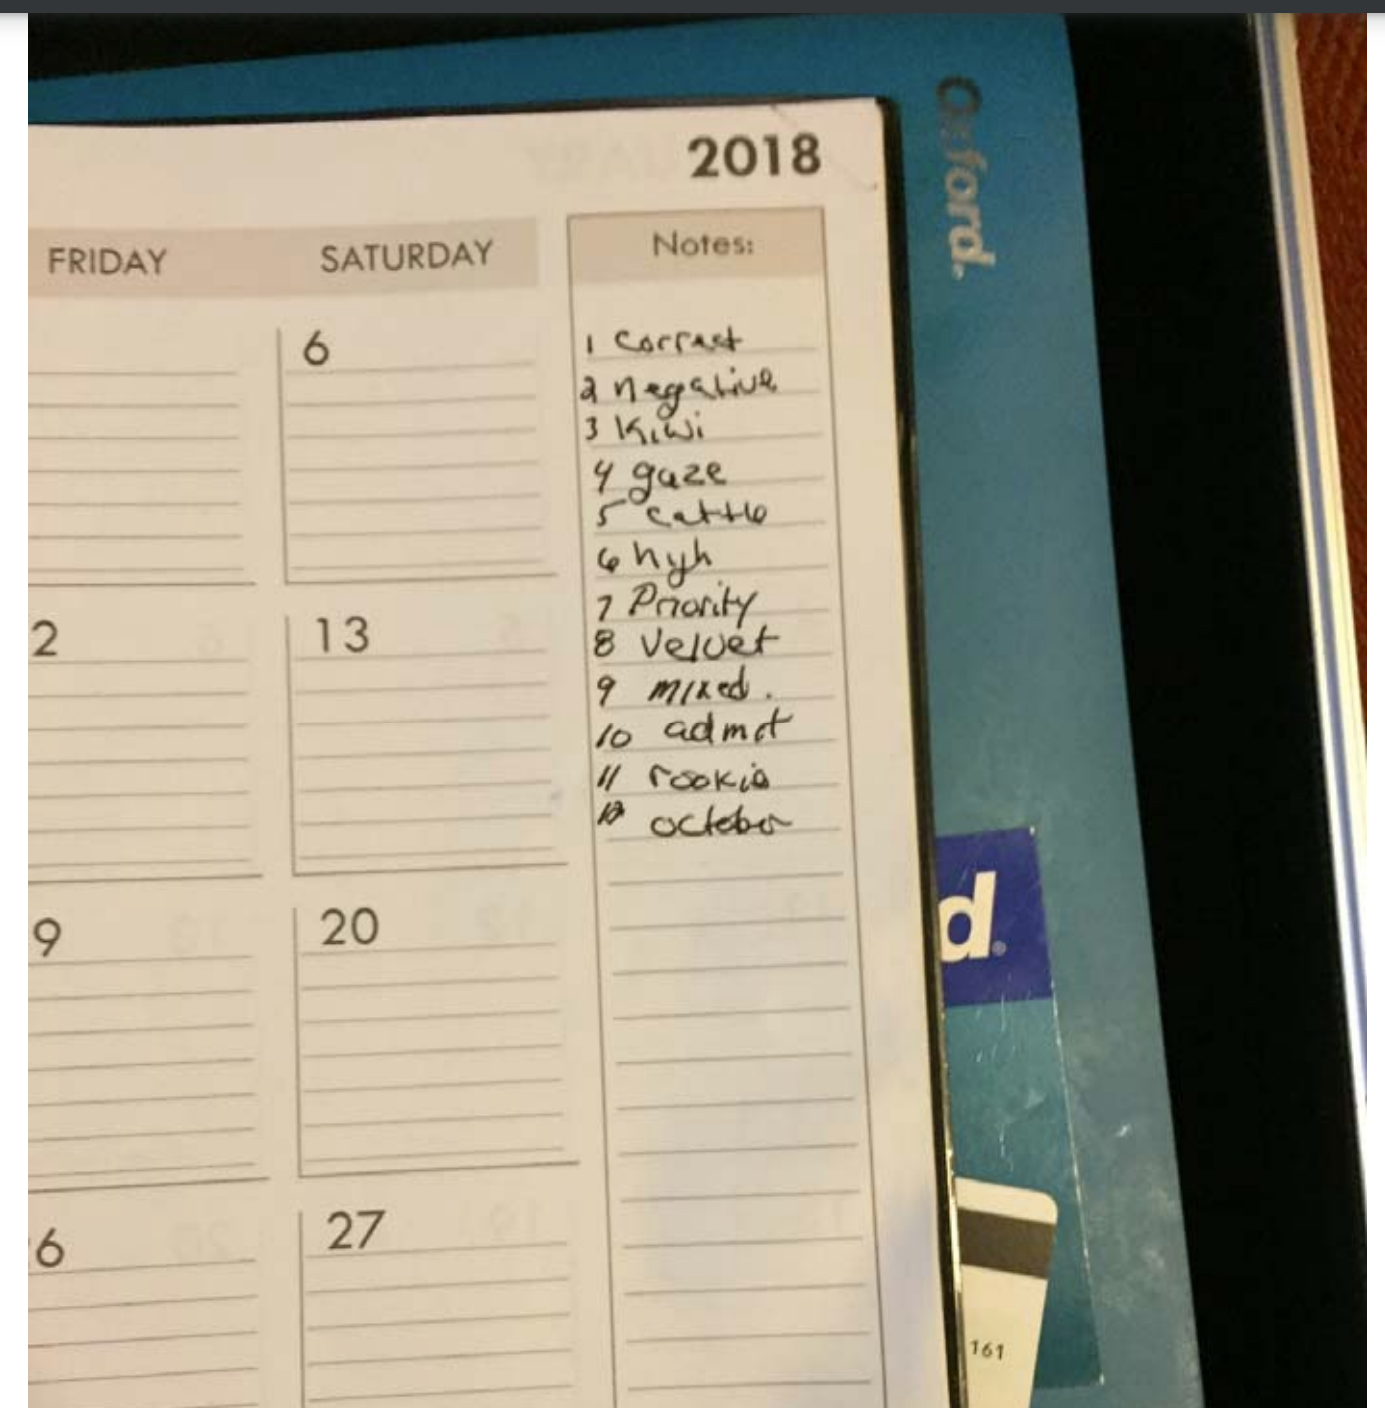 Oxford.
2018
FRIDAY SATURDAY Notes:
6
1 Correct
2 negative
3 Kiwi
4 gaze
5 cattle
6 high
7 Priority
8 Velvet
9 mixed.
10 admit
11 rookie
12 october
2 13
9 20
6 27
d.
161